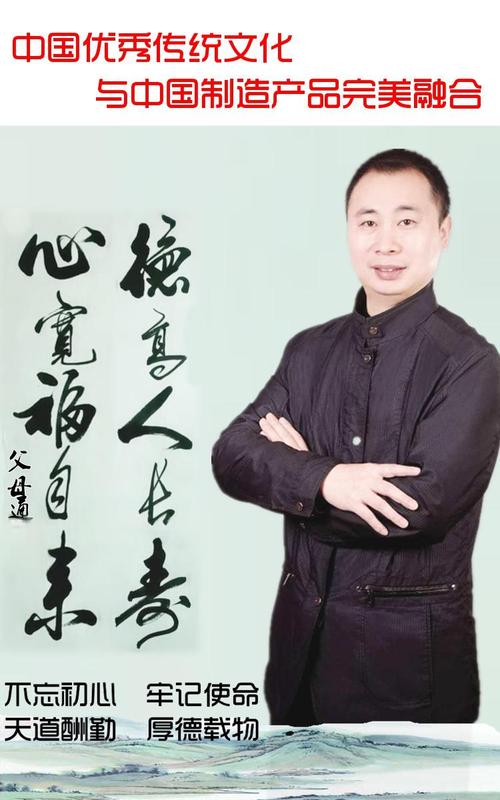 中国优秀传统文化
与中国制造产品完美融合
德高人长寿
心宽福自来
父母通
不忘初心 牢记使命
天道酬勤 厚德载物